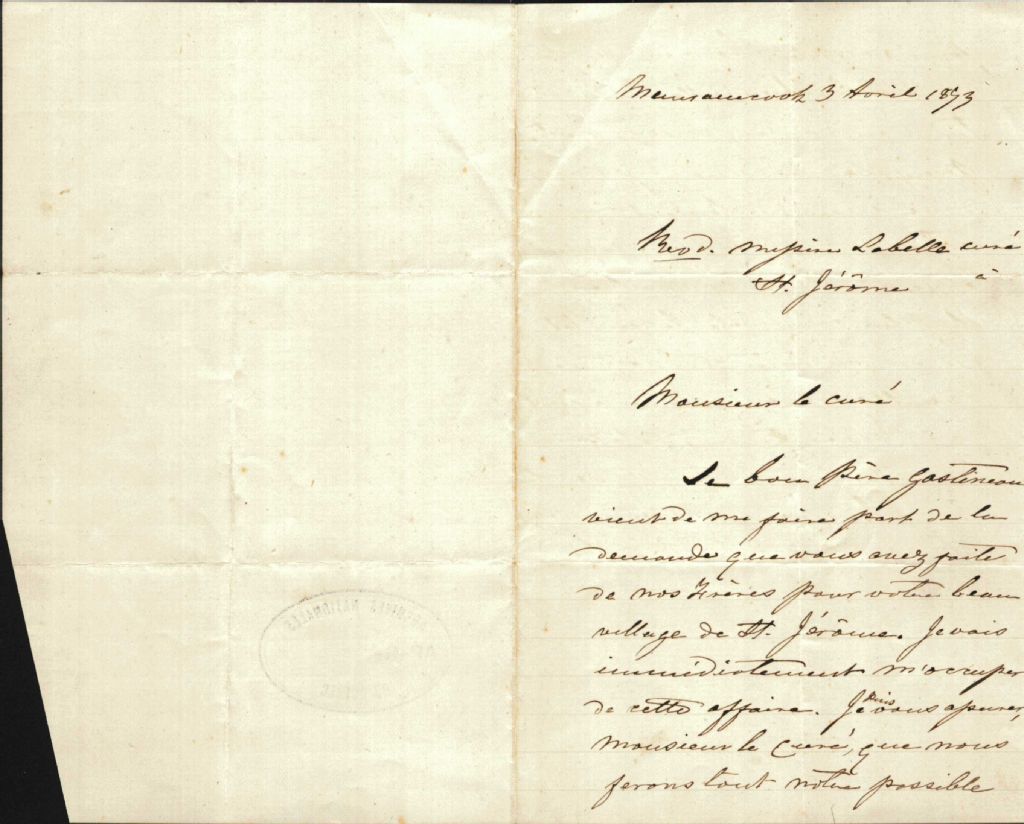 Memramcook 3 Avril 1873
Revd. messire Labelle curé
à
St. Jérôme
Monsieur le curé
Le bon Père Gastineau
vient de me faire part de la
demande que vous avez faite
de nos Frères pour votre beau
village de St. Jérôme. Je vais
immédiatement m'occuper
de cette affaire. Je puis vous assurer,
monsieur le Curé, que nous
ferons tout notre possible
ARCHIVES NATIONALES